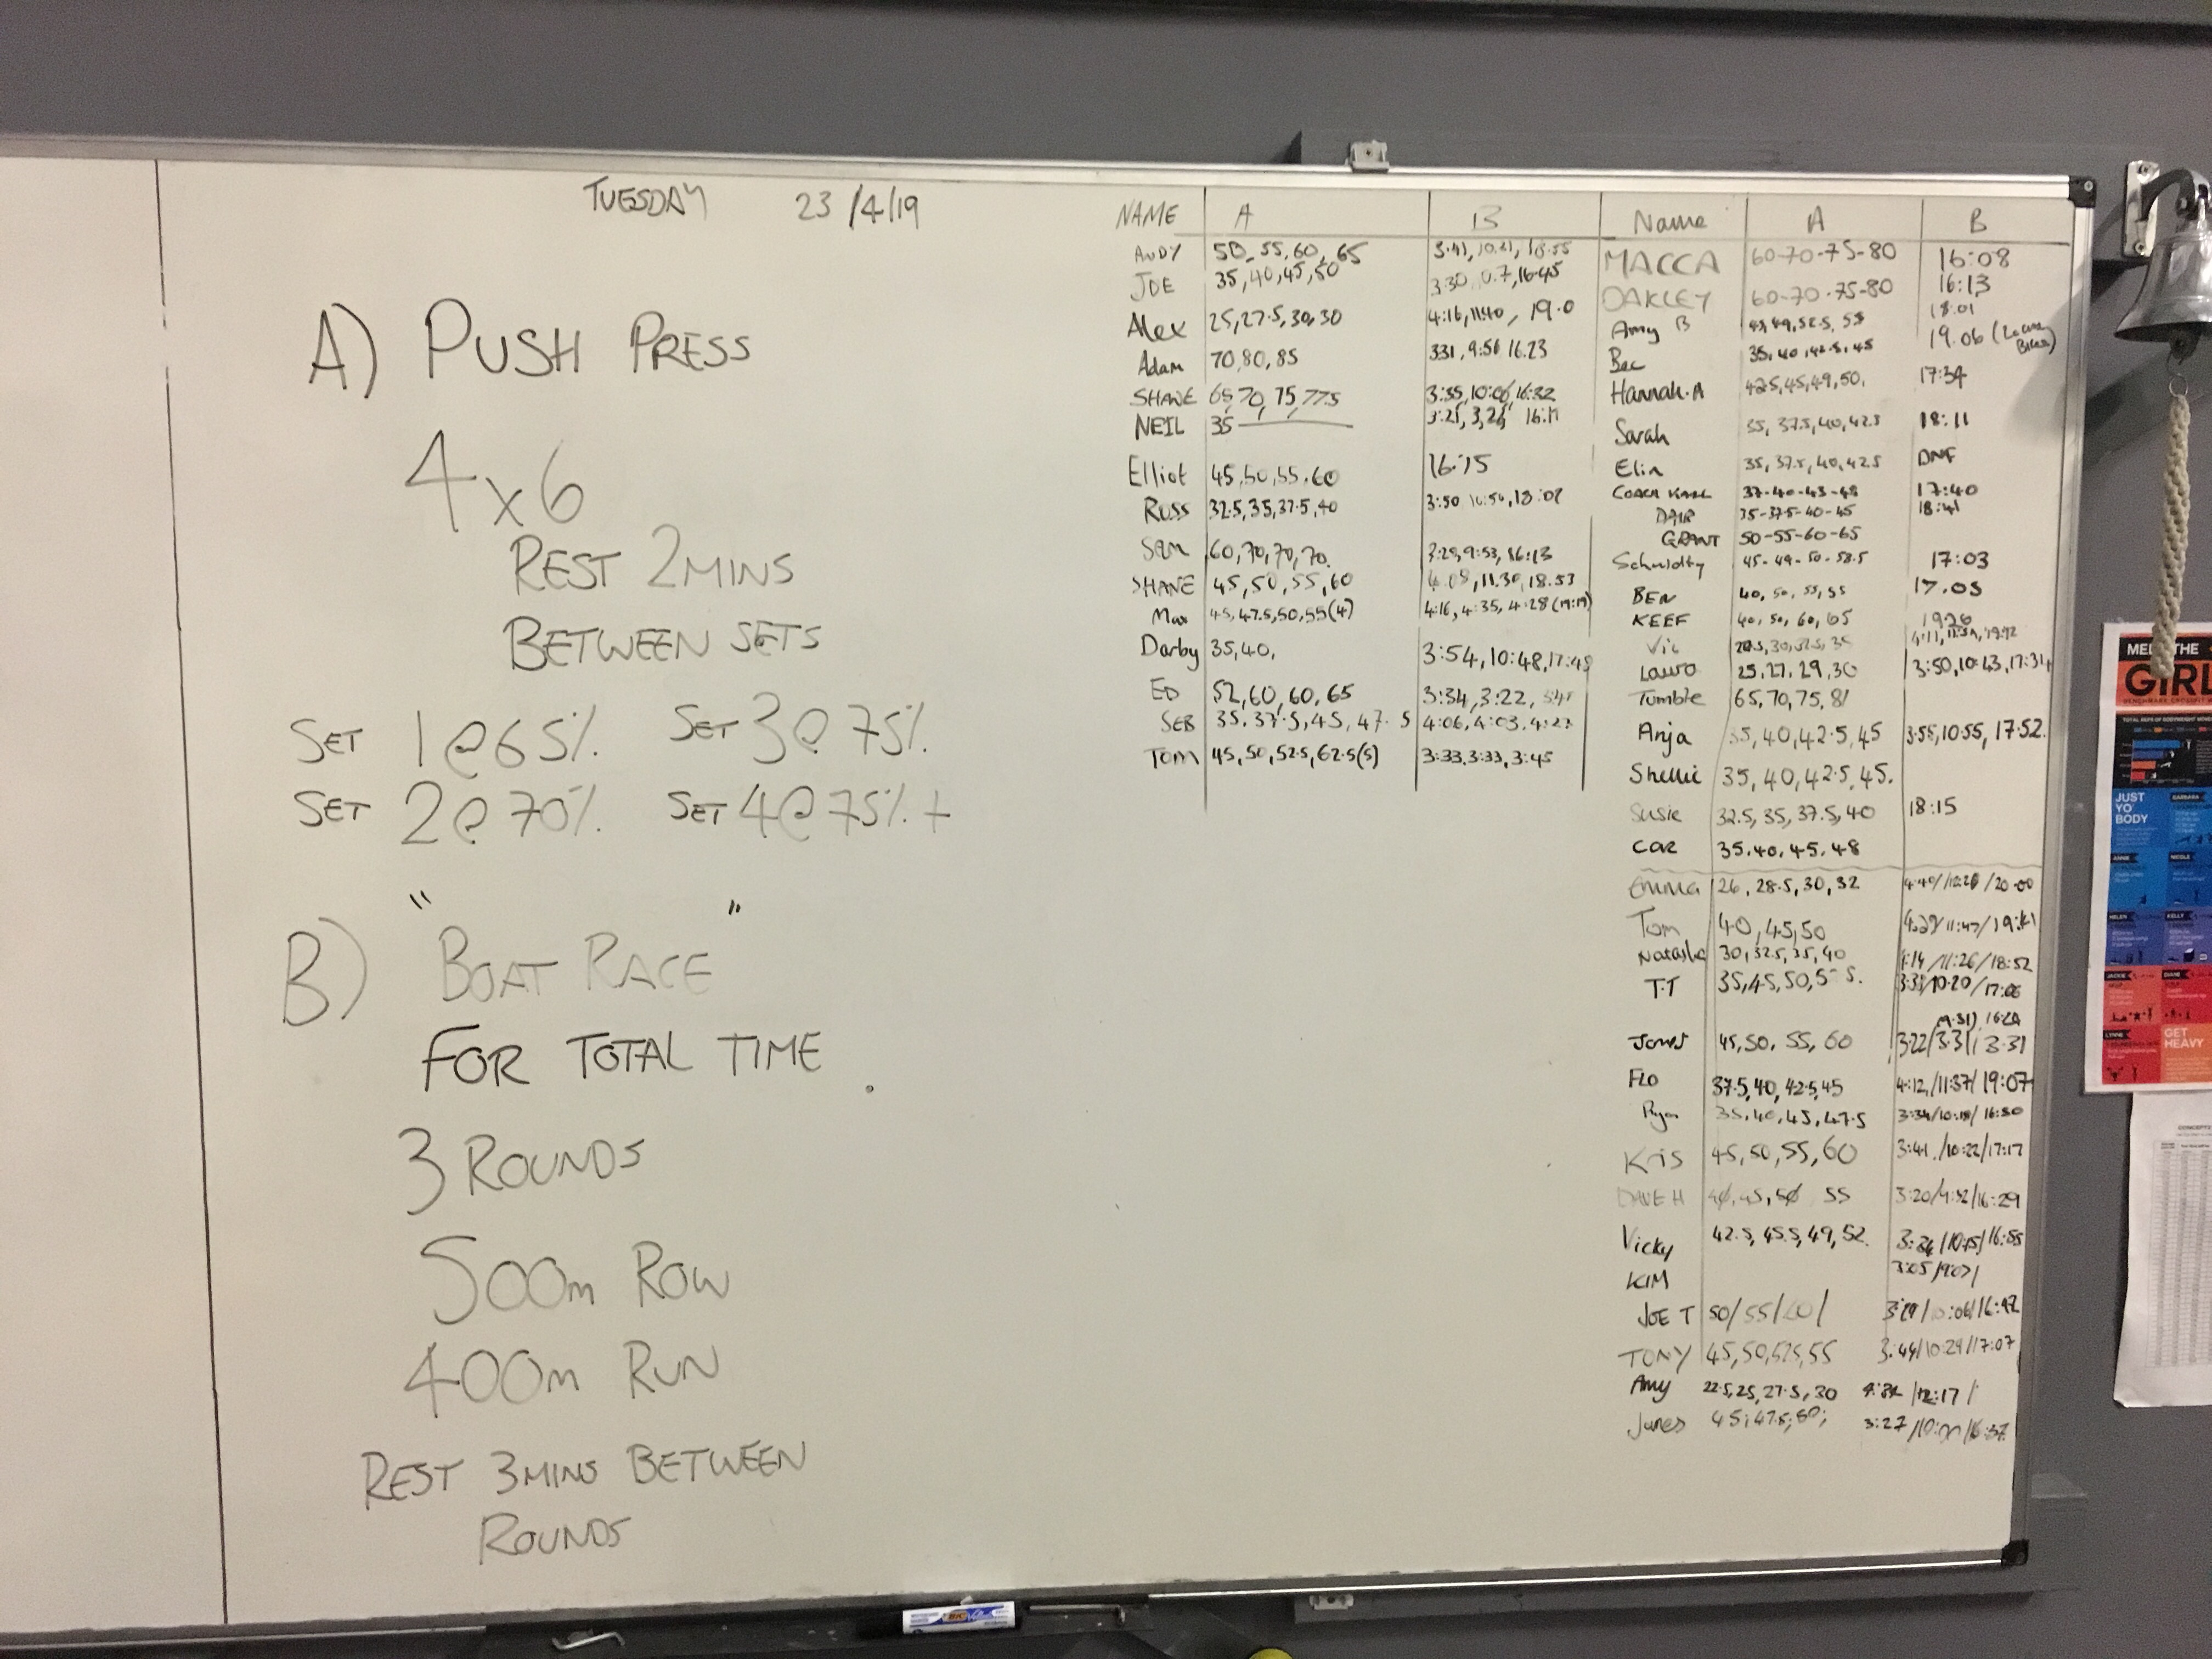 TUESDAY 23/4/19
A) PUSH PRESS
4x6
REST 2MINS
BETWEEN SETS
SET 1@65% SET 3@75%
SET 2@70% SET 4@75%+
B) "BOAT RACE"
FOR TOTAL TIME.
3 ROUNDS
500m ROW
400m RUN
REST 3MINS BETWEEN
ROUNDS
NAME A B
ANDY 50, 55, 60, 65 3:41, 10.21, 18:55
JOE 35, 40, 45, 50 3:30 16:45
Alex 25, 27.5, 30, 30 4:16, 11:40, 19.0
Adam 70, 80, 85 331, 9:56 16.23
SHANE 65, 70, 75, 77.5 3:35, 10:06, 16:32
NEIL 35
Elliot 45, 50, 55, 60 16:15
Russ 32.5, 35, 37.5, 40 3:50
Sam 60, 70, 70, 70. 9:53, 16:13
SHANE 45, 50, 55, 60 11.30, 18.53
Max 45, 47.5, 50, 55(4) 4:16, 4:35, 4:28 (19:19)
Darby 35, 40, 3:54, 10:48, 17:48
ED 52, 60, 60, 65 3:34, 3:22,
SEB 35, 37.5, 45, 47.5 4:06, 4:03, 4:27
Tom 45, 50, 52.5, 62.5(5) 3:33, 3:33, 3:45
Name A B
MACCA 60-70-75-80 16:08
OAKLEY 60-70-75-80 16:13
Amy B 52.5, 55 18:01
Bec 35, 40, 42.5, 45 19.06
Hannah.A 42.5, 45, 49, 50. 17:34
Sarah 35, 37.5, 40, 42.5 18:11
Elin 35, 37.5, 40, 42.5 DNF
COACH KARL 37-40-43-48 17:40
35-37.5-40-45 18:41
GRANT 50-55-60-65
Schmidty 45-49-50-52.5 17:03
BEN 40, 50, 55, 55 17.05
KEEF 40, 50, 60, 65 1926
Vic
Laura 25, 27, 29, 30 3:50, 10:43, 17:31
Tumble 65, 70, 75, 81
Anja 35, 40, 42.5, 45 3:58, 10:55, 17:52.
Shellie 35, 40, 42.5, 45.
Susie 32.5, 35, 37.5, 40 18:15
CAR 35, 40, 45, 48
Emma 26, 28.5, 30, 32 20:00
Tom 40, 45, 50
Natasha 30, 32.5, 35, 40 4:14/11:26/18:52
T.T 35, 45, 50, 10:20/17:06
45, 50, 55, 60 3:22/3:31/3:31
FLO 37.5, 40, 42.5, 45 4:12/11:37/19:07
Ryan 35, 40, 45, 47.5 3:34/10:18/16:50
Kris 45, 50, 55, 60 3:41/10:22/17:17
DAVE H 40, 45, 50 55 3:20/9:52/16:29
Vicky 42.5, 45.5, 49, 52. 3:34/10:15/16:55
KIM 3:05/9:07/
JOE T 50/55/60/ 3:29/10:06/16:42
TONY 45, 50, 52.5, 55 3:44/10:29/17:07
Amy 22.5, 25, 27.5, 30 12:17/
James 45, 47.5, 50, 3:27/10:00/16:37
MEET THE
GIRL
JUST
YO'
BODY
BARBARA
ANNIE
NICOLE
HELEN
KELLY
JACKIE
DIANE
LYNNE
GET
HEAVY
BIC